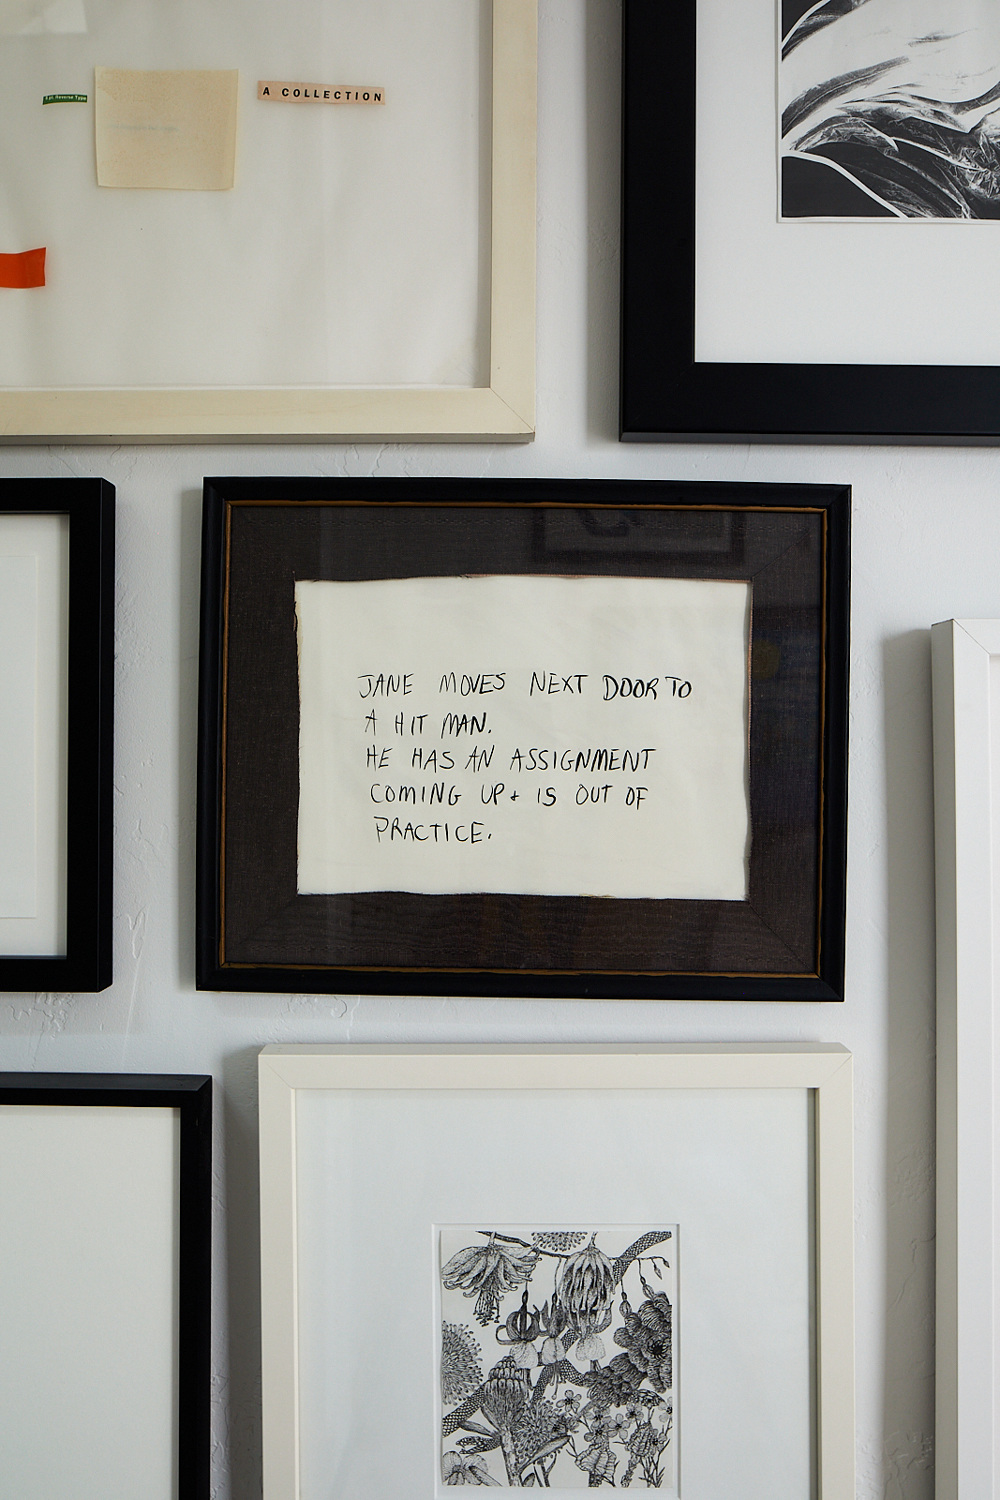 A COLLECTION
JANE MOVES NEXT DOOR TO
A HIT MAN.
HE HAS AN ASSIGNMENT
COMING UP + IS OUT OF
PRACTICE.